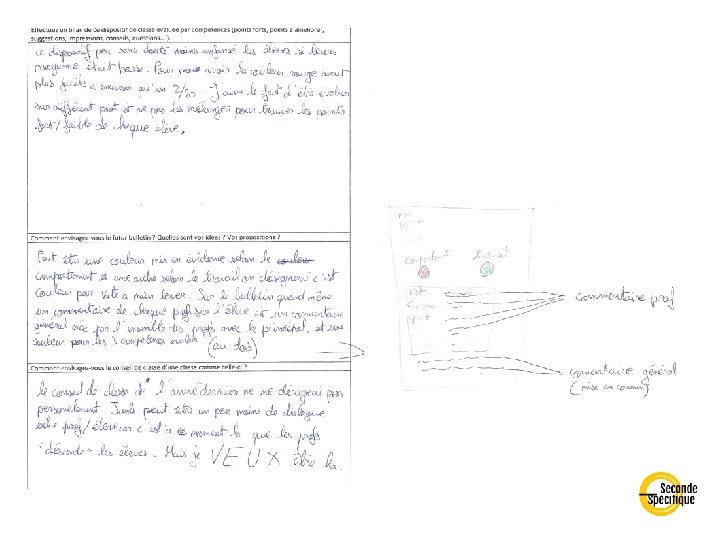 Effectuez un bilan de ce dispositif de classe évaluée par compétences (points forts, points à améliorer,
suggestions, impressions, conseils, questions…).
ce dispositif peu sans doute moins enfoncé les élèves si leurs
programe était basse. Pour nous avoir la couleur rouge serait
plus facile a encaisser qu'un 2/20. J'aime le fait d'être évaluer
sur différent point et ne pas les mélanger pour trouver les points
fort/faible de chaque élève.
Comment envisagez-vous le futur bulletin ? Quelles sont vos idées ? Vos propositions ?
Peut être une couleur mis en évidence selon le
comportement et une autre selon le travail on désignerai c'est
couleur par vote a main lever. Sur le bulletin quand même
un commentaire de chaque prof sur l'élève et un commentaire
général crée par l'ensemble des profs avec le principal, et une
couleur pour les 3 compétence évaluée (au dos)
Comment envisagez-vous le conseil de classe d'une classe comme celle-ci ?
le conseil de classe de l'année dernier ne me dérageai pas
personellement. Juste peut être un peu moins de dialogue
entre prof/élève car c'est a ce moment la que les profs
"descende" les élèves. Mais je VEUX être la.
comportement
travail
commentaire prof
commentaire général
(mise en commun)
Seconde
Spécifique